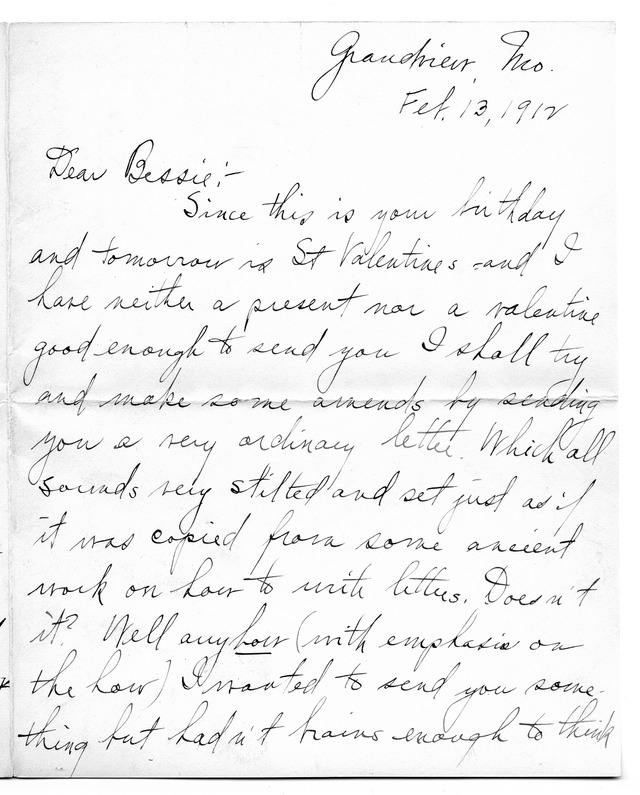 Grandview, Mo.
Feb. 13, 1912
Dear Bessie:-
Since this is your birthday
and tomorrow is St Valentines - and I
have neither a present nor a valentine
good enough to send you I shall try
and make some amends by sending
you a very ordinary letter. Which all
sounds very stilted and set just as if
it was copied from some ancient
work on how to write letters. Doesn't
it? Well anyhow (with emphasis on
the how) I wanted to send you some-
thing but hadn't brains enough to think